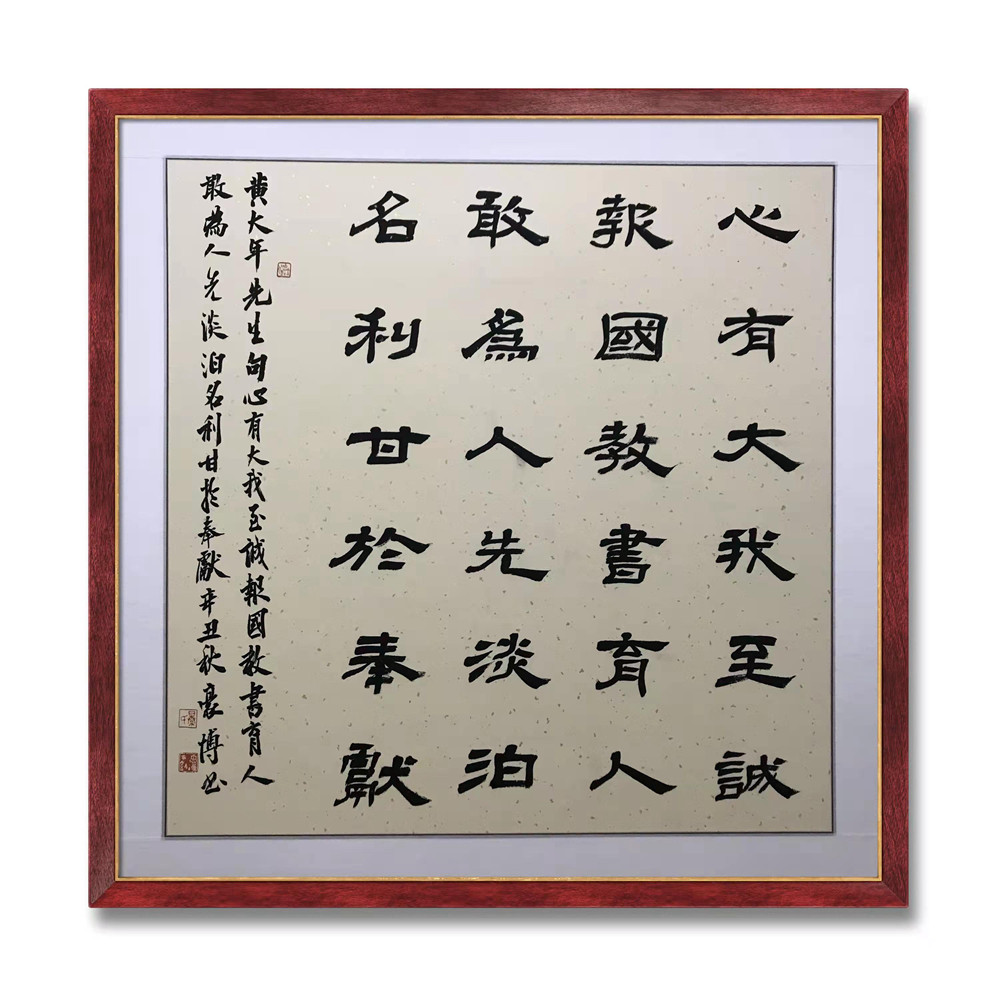 心有大我至誠
報國教書育人
敢為人先淡泊
名利甘於奉獻
黄大年先生句心有大我至诚報國教书育人
敢為人先淡泊名利甘於奉獻辛丑秋豪博书